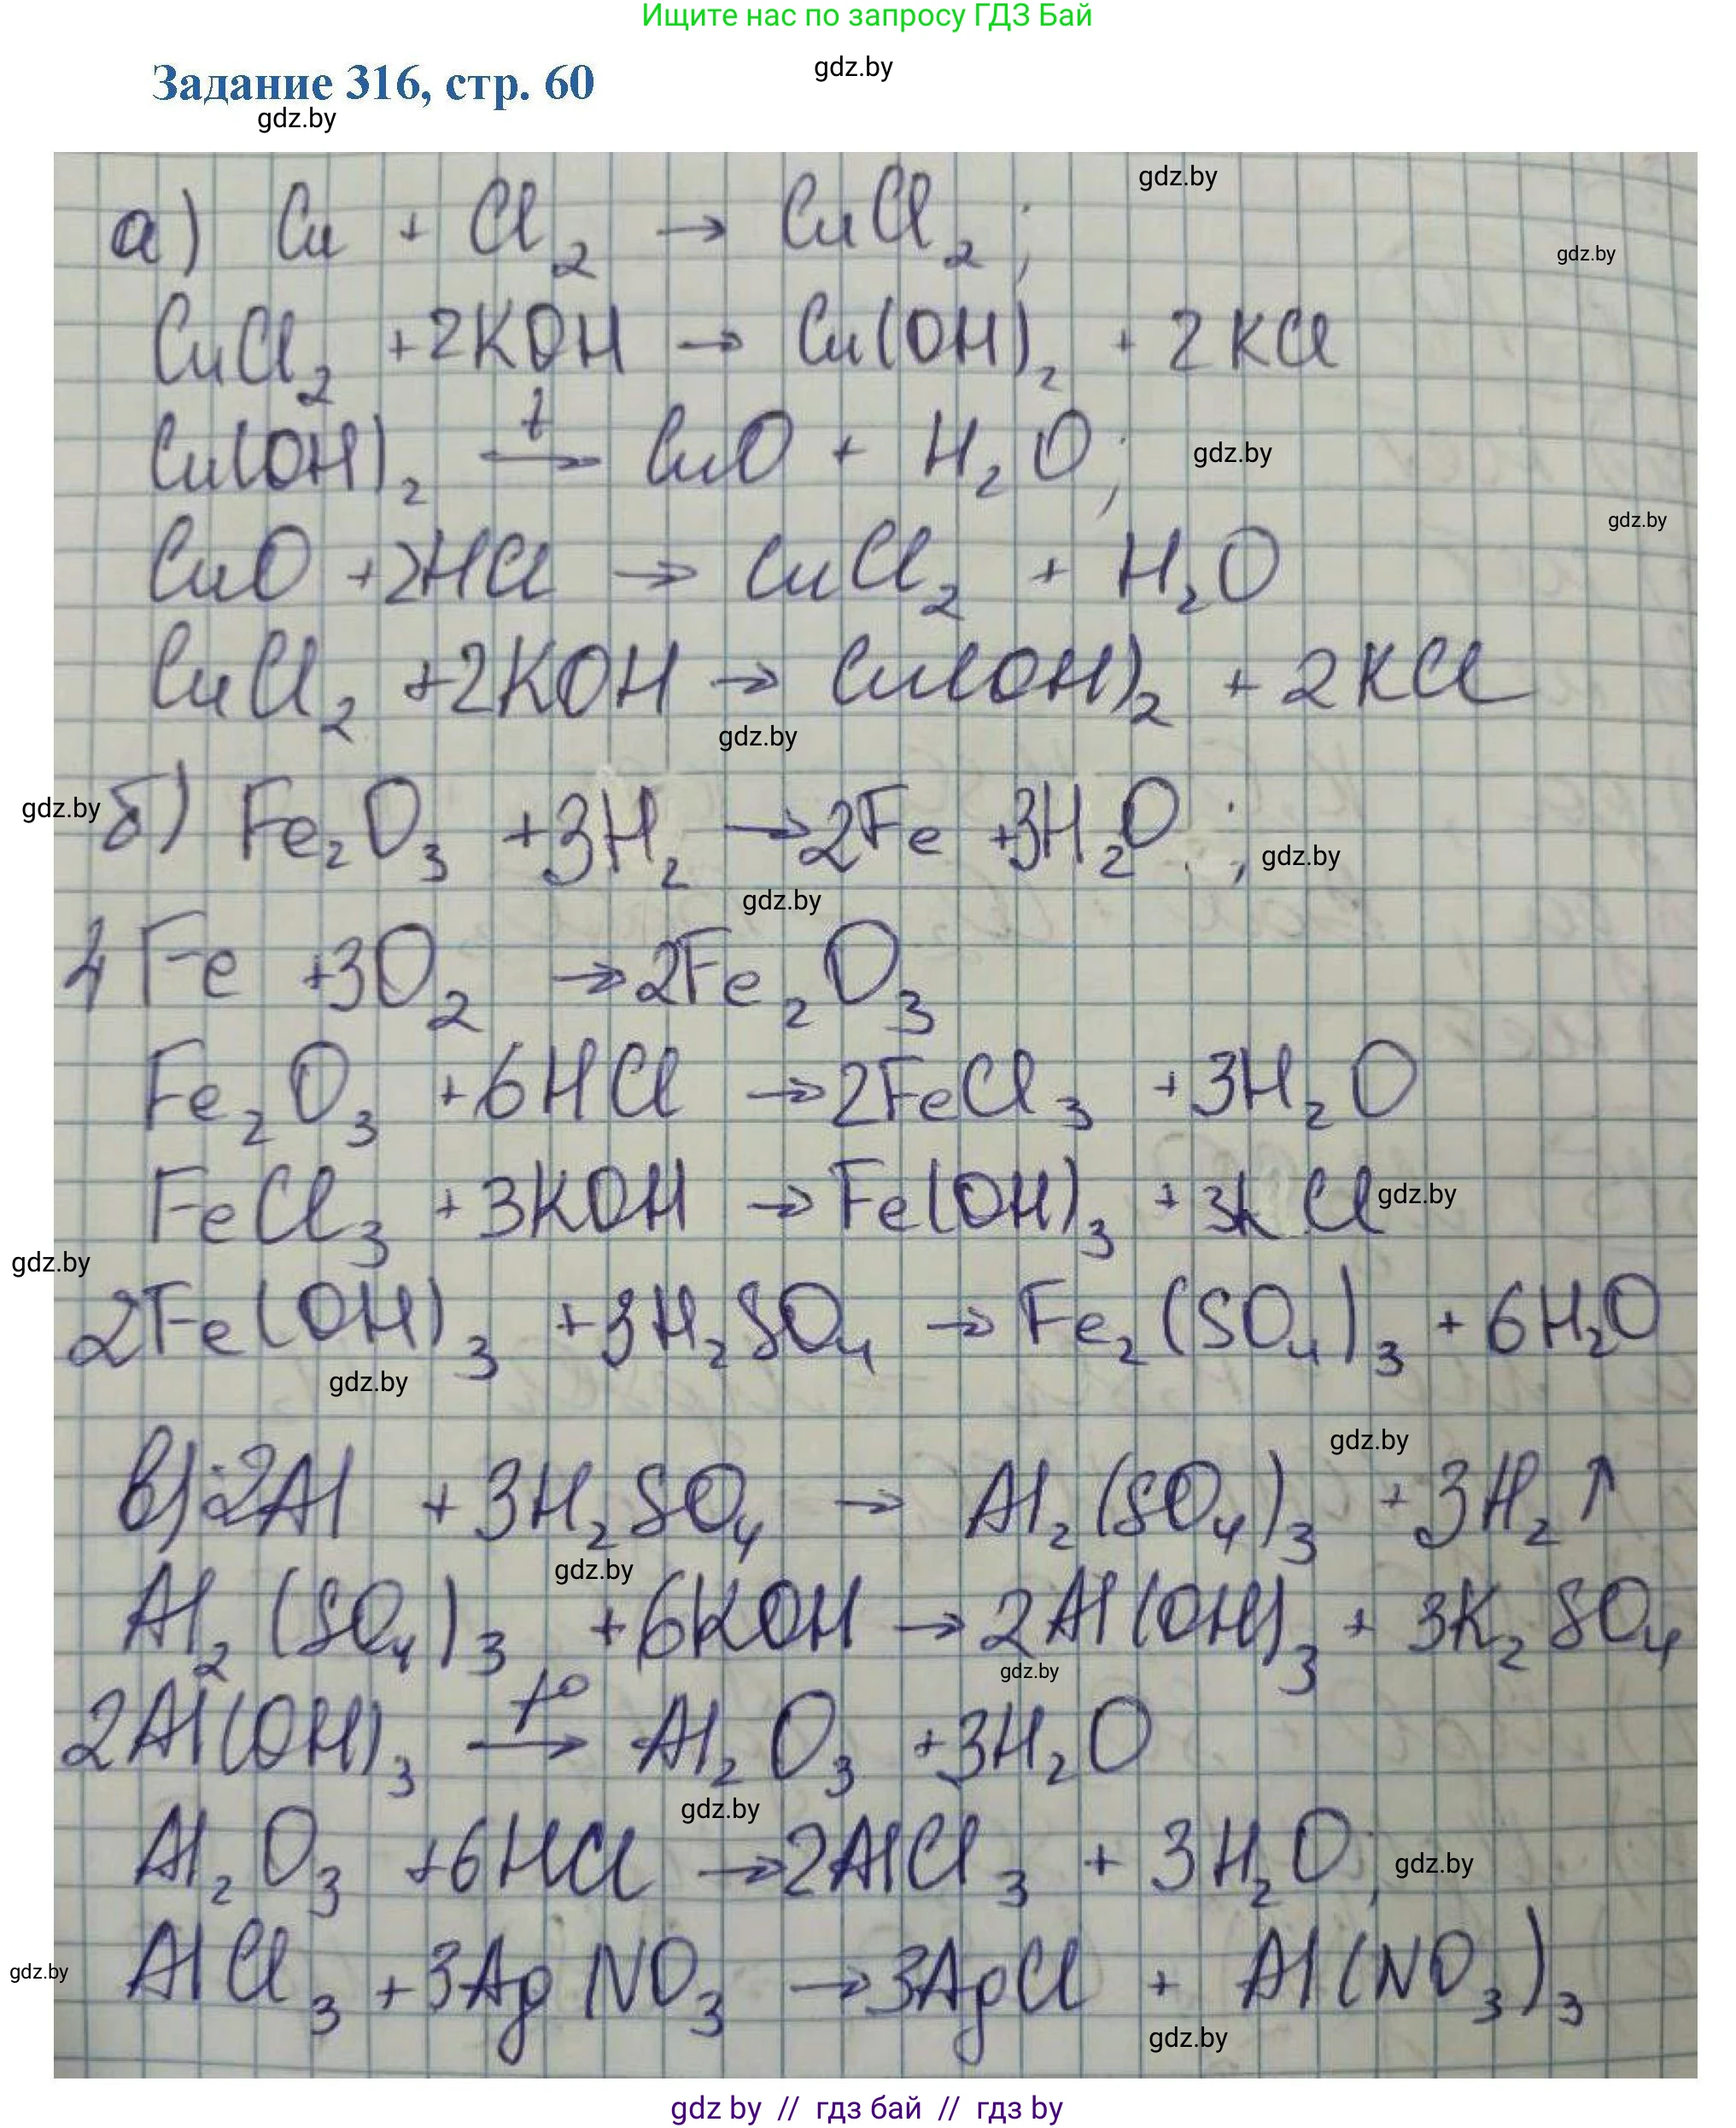 Ищите нас по запросу ГДЗ Бай
gdz.by
Задание 316, стр. 60
gdz.by
gdz.by
а) Cu + Cl₂ → CuCl₂;
gdz.by
CuCl₂ +2KOH → Cu(OH)₂ + 2KCl
Cu(OH)₂ t→ CuO + H₂O;
gdz.by
gdz.by
CuO +2HCl → CuCl₂ + H₂O
CuCl₂ +2KOH → Cu(OH)₂ + 2KCl
gdz.by
gdz.by
б) Fe₂O₃ +3H₂ →2Fe +3H₂O ;
gdz.by
gdz.by
4Fe +3O₂ →2Fe₂O₃
Fe₂O₃ +6HCl →2FeCl₃ +3H₂O
FeCl₃ +3KOH → Fe(OH)₃ +3KCl
gdz.by
gdz.by
2Fe(OH)₃ +3H₂SO₄ → Fe₂(SO₄)₃ +6H₂O
gdz.by
gdz.by
в) 2Al +3H₂SO₄ → Al₂(SO₄)₃ +3H₂↑
gdz.by
Al₂(SO₄)₃ +6KOH → 2Al(OH)₃ + 3K₂SO₄
gdz.by
2Al(OH)₃ t°→ Al₂O₃ +3H₂O
gdz.by
Al₂O₃ +6HCl →2AlCl₃ + 3H₂O;
gdz.by
gdz.by
AlCl₃ +3AgNO₃ →3AgCl + Al(NO₃)₃
gdz.by
gdz by // гдз бай // гдз by